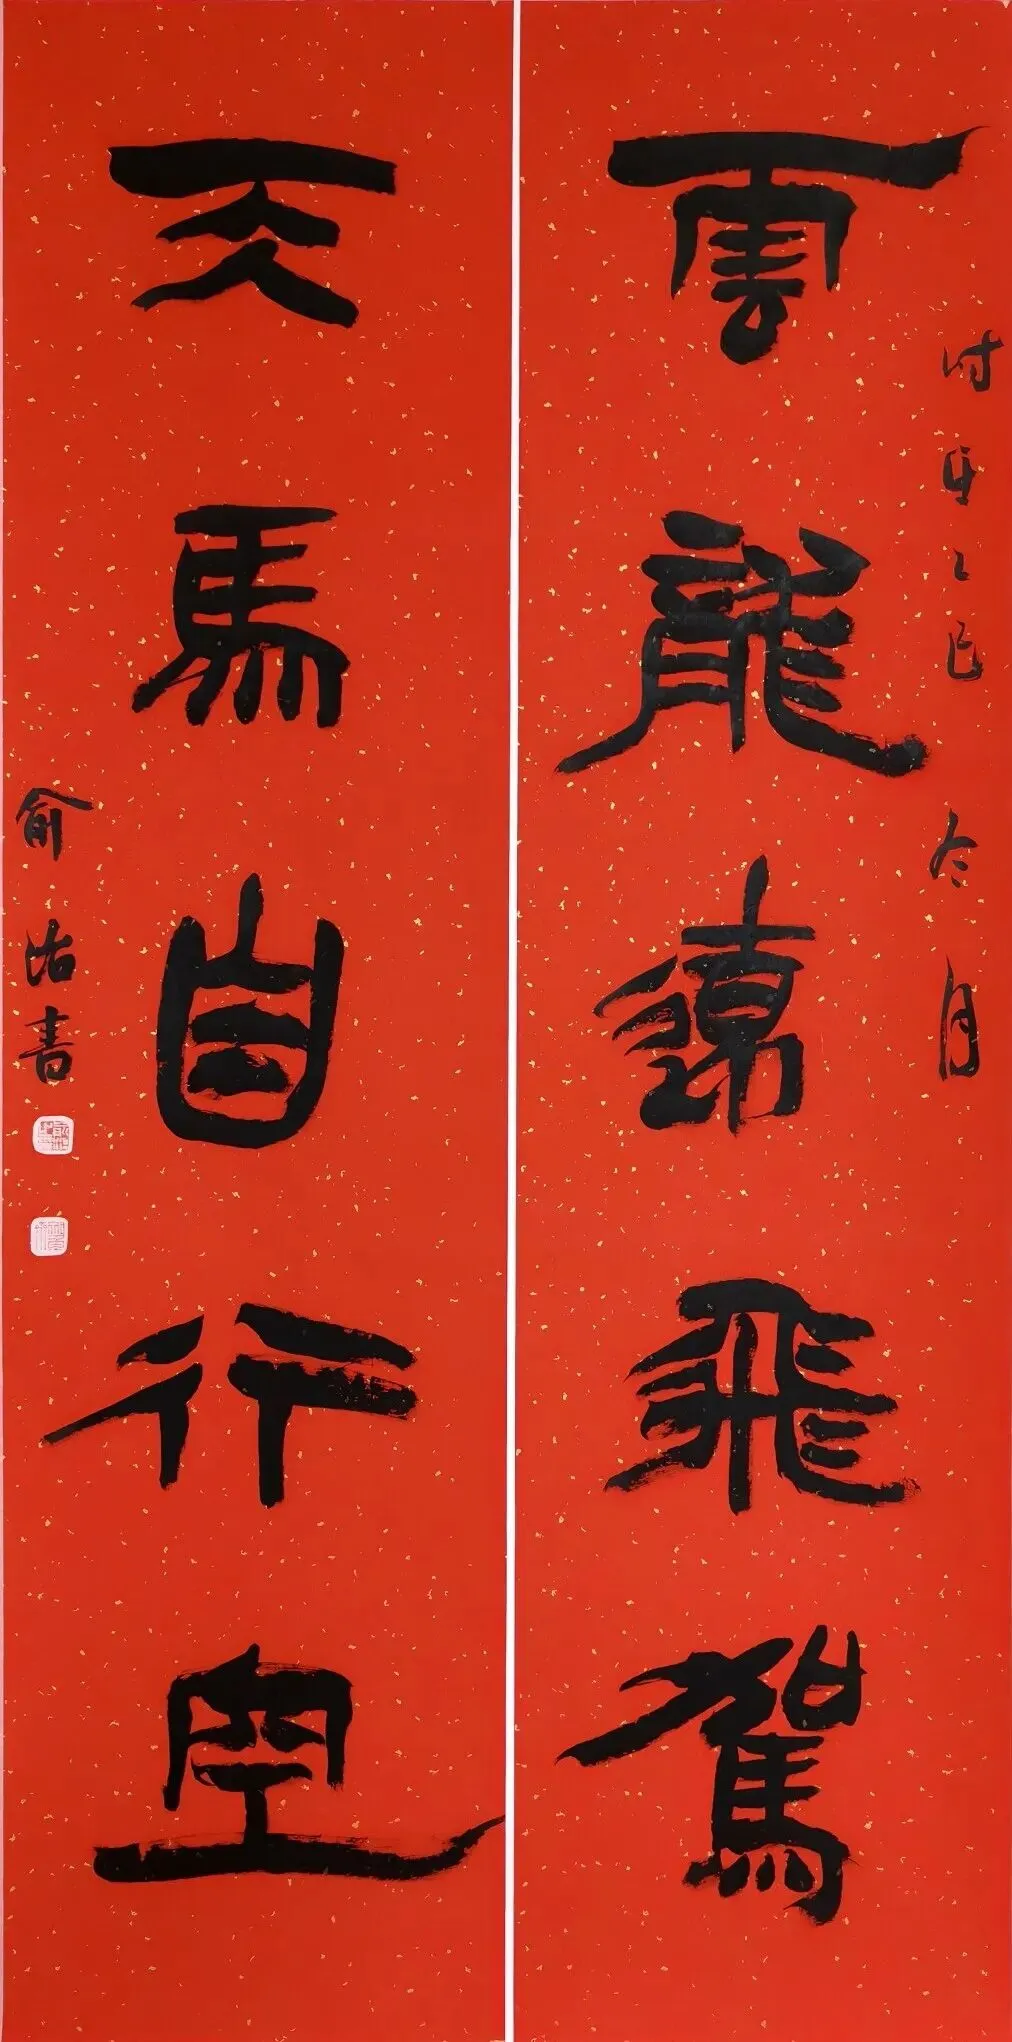 雲龍遠飛駕
時在乙巳冬月
天馬自行空
俞 書